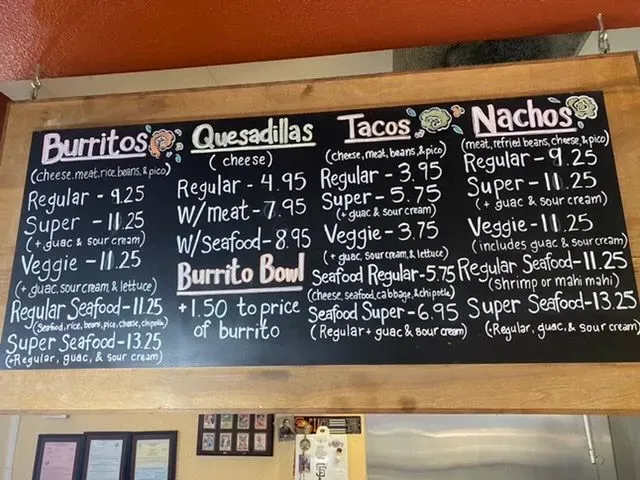 Burritos
(cheese, meat, rice, beans, & pico)
Regular - 9.25
Super - 11.25
(+ guac & sour cream)
Veggie - 11.25
(+ guac, sour cream, & lettuce)
Regular Seafood - 11.25
(Seafood, rice, beans, pico, cheese, chipotle)
Super Seafood - 13.25
(+Regular, guac, & sour cream)
Quesadillas
(cheese)
Regular - 4.95
W/meat - 7.95
W/Seafood - 8.95
Burrito Bowl
+1.50 to price
of burrito
Tacos
(cheese, meat, beans, & pico)
Regular - 3.95
Super - 5.75
(+ guac & sour cream)
Veggie - 3.75
(+ guac, sour cream, & lettuce)
Seafood Regular - 5.75
(cheese, seafood, cabbage, & chipotle)
Seafood Super - 6.95
(Regular + guac & sour cream)
Nachos
(meat, refried beans, cheese, & pico)
Regular - 9.25
Super - 11.25
(+ guac & sour cream)
Veggie - 11.25
(includes guac & sour cream)
Regular Seafood - 11.25
(shrimp or mahi mahi)
Super Seafood - 13.25
(+Regular, guac, & sour cream)